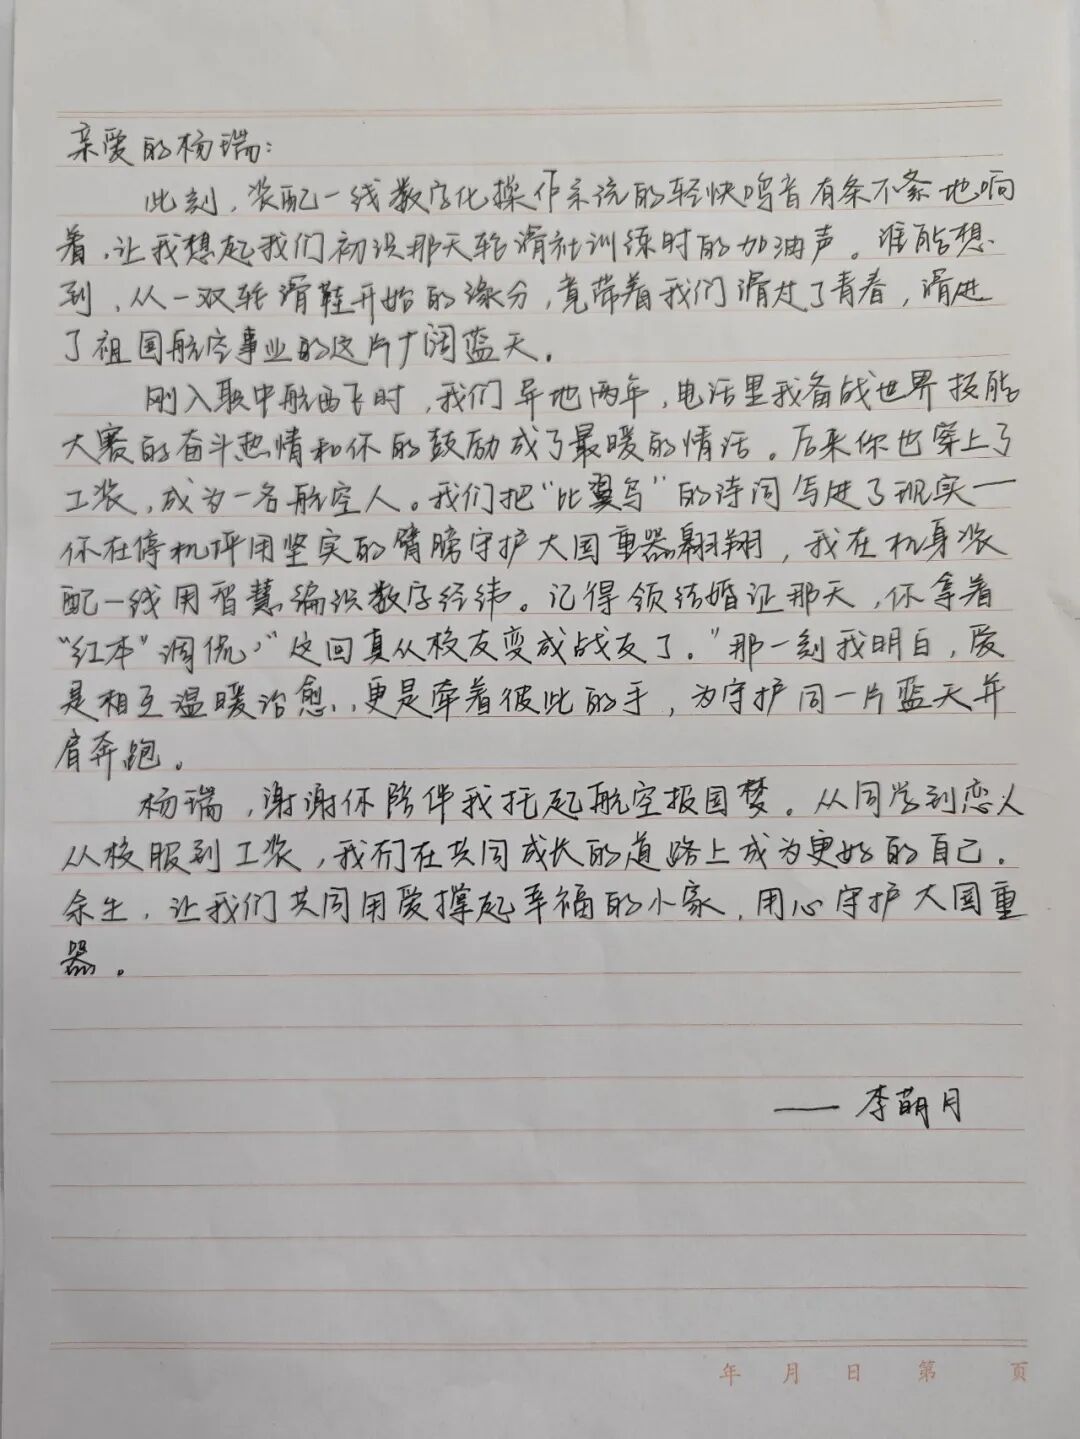 亲爱的杨瑞：
此刻，装配一线数字化操作系统的轻快鸣音有条不紊地响
着，让我想起我们初识那天轮滑社训练时的加油声。谁能想
到，从一双轮滑鞋开始的缘分，竟带着我们滑过了青春，滑进
了祖国航空事业的这片广阔蓝天。
刚入职中航西飞时，我们异地两年，电话里我备战世界技能
大赛的奋斗热情和你的鼓励成了最暖的情话。后来你也穿上了
工装，成为一名航空人。我们把“比翼鸟”的诗词写进了现实一
你在停机坪用坚实的臂膀守护大国重器翱翔，我在机身装
配一线用智慧编织数字经纬。记得领结婚证那天，你拿着
“红本”调侃：“这回真从校友变成战友了。”那一刻我明白，爱
是相互温暖治愈，更是牵着彼此的手，为守护同一片蓝天并
肩奔跑。
杨瑞，谢谢你陪伴我托起航空报国梦。从同学到恋人
从校服到工装，我们在共同成长的道路上成为更好的自己。
余生，让我们共同用爱撑起幸福的小家，用心守护大国重
器。
——李萌月
年 月 日 第 页